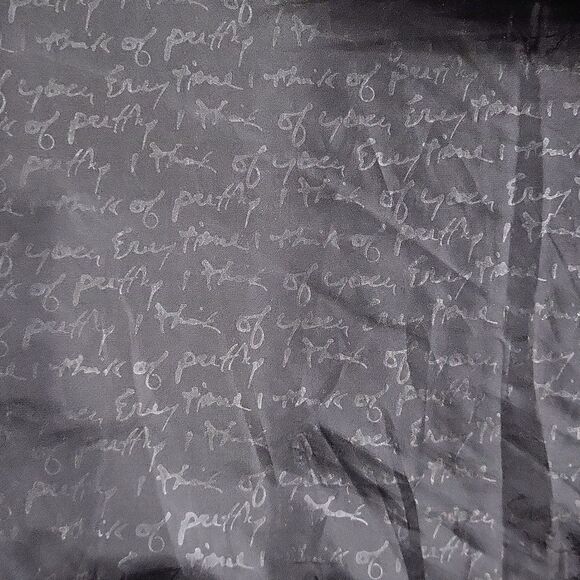 think of pretty I think
of you, Every time I think of pretty I
of pretty I think of you Every time
of pretty I think of you, Every time I think
think of pretty I think of you Every
of you, Every time I think of pretty I think
of pretty I think of you Every time I
of pretty I think of you, Every time
think of pretty I think of you
of you, Every time I think of pretty
of pretty I think you Every time
of pretty I think of you, Every time
think of pretty think of you
time I think of pretty